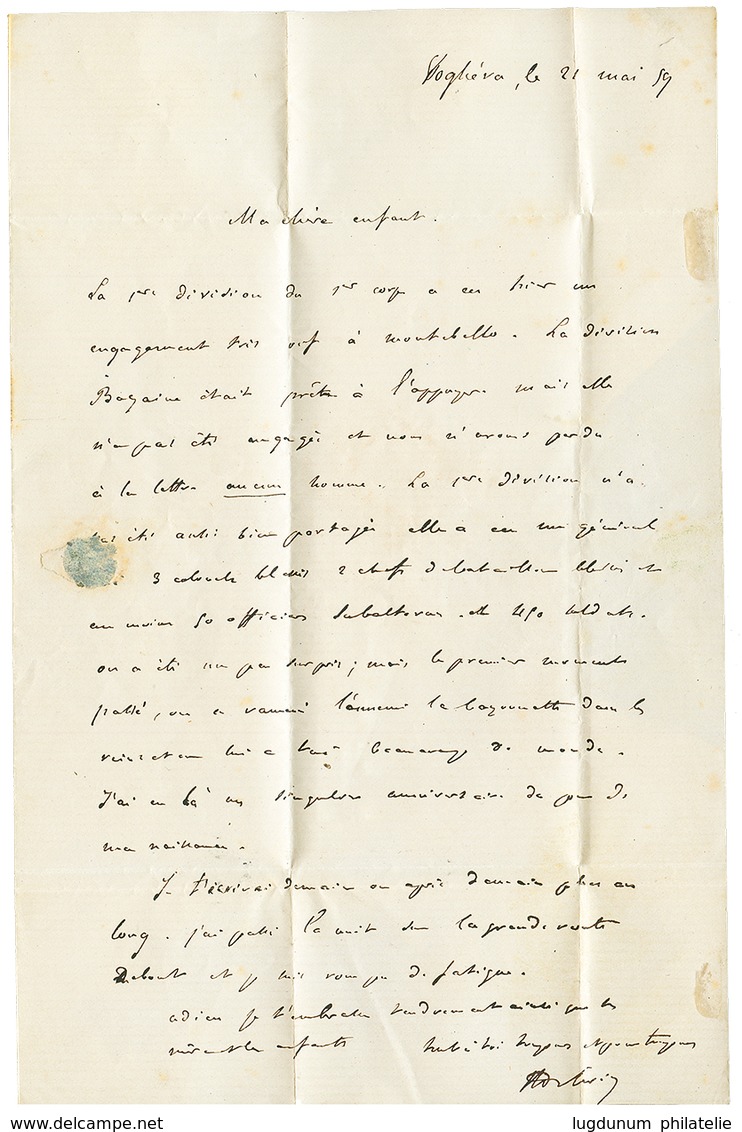 Voghéra, le 21 mai 59
Ma chère enfant.
La 1ère division du 1er corps a eu hier un
engagement très vif à montebello. La division
Bazaine était prête à l'appuyer mais elle
n'a pas été engagée et nous n'avons perdu
à la lettre aucun homme. La 1ère division n'a
pas été aussi bien partagée elle a eu un général
3 colonels blessés 2 chefs de bataillon blessés et
au moins 50 officiers subalternes et 450 soldats.
on a été un peu surpris ; mais le premier moment
passé, on a ramené l'ennemi la bayonnette dans les
reins et on lui a tué beaucoup de monde.
J'ai eu là un singulier anniversaire du jour de
ma naissance.
Je t'écrirai demain ou après demain plus au
long. j'ai passé la nuit sur la grande route
Debout et je suis rompu de fatigue.
adieu je t'embrasse tendrement ainsi que ta
mère et les enfants tout à toi toujours et pour toujours
lugdunum philatelie
www.delcampe.net